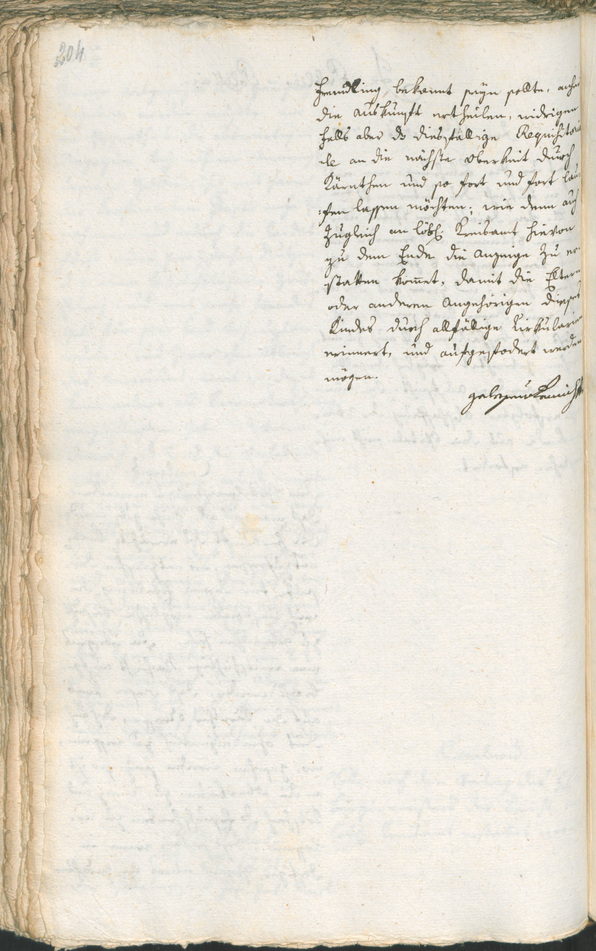 204
Fremdling bekannt seyn sollte, anher
die Auskunft ertheilen, widrigen
falls aber die diesfällige Requisitoria
le an die nächste Oberkeit durch
Kärnthen und so fort und fort lau
fen lassen möchten; wie dann auch
zugleich an löbl. Kreisamt hievon
zu dem Ende die Anzeige zu er
statten kömmt, damit die Eltern
oder anderen Angehörigen dieses
Kindes durch allfällige Zirkularien
erinnert, und aufgefodert werden
mögen.